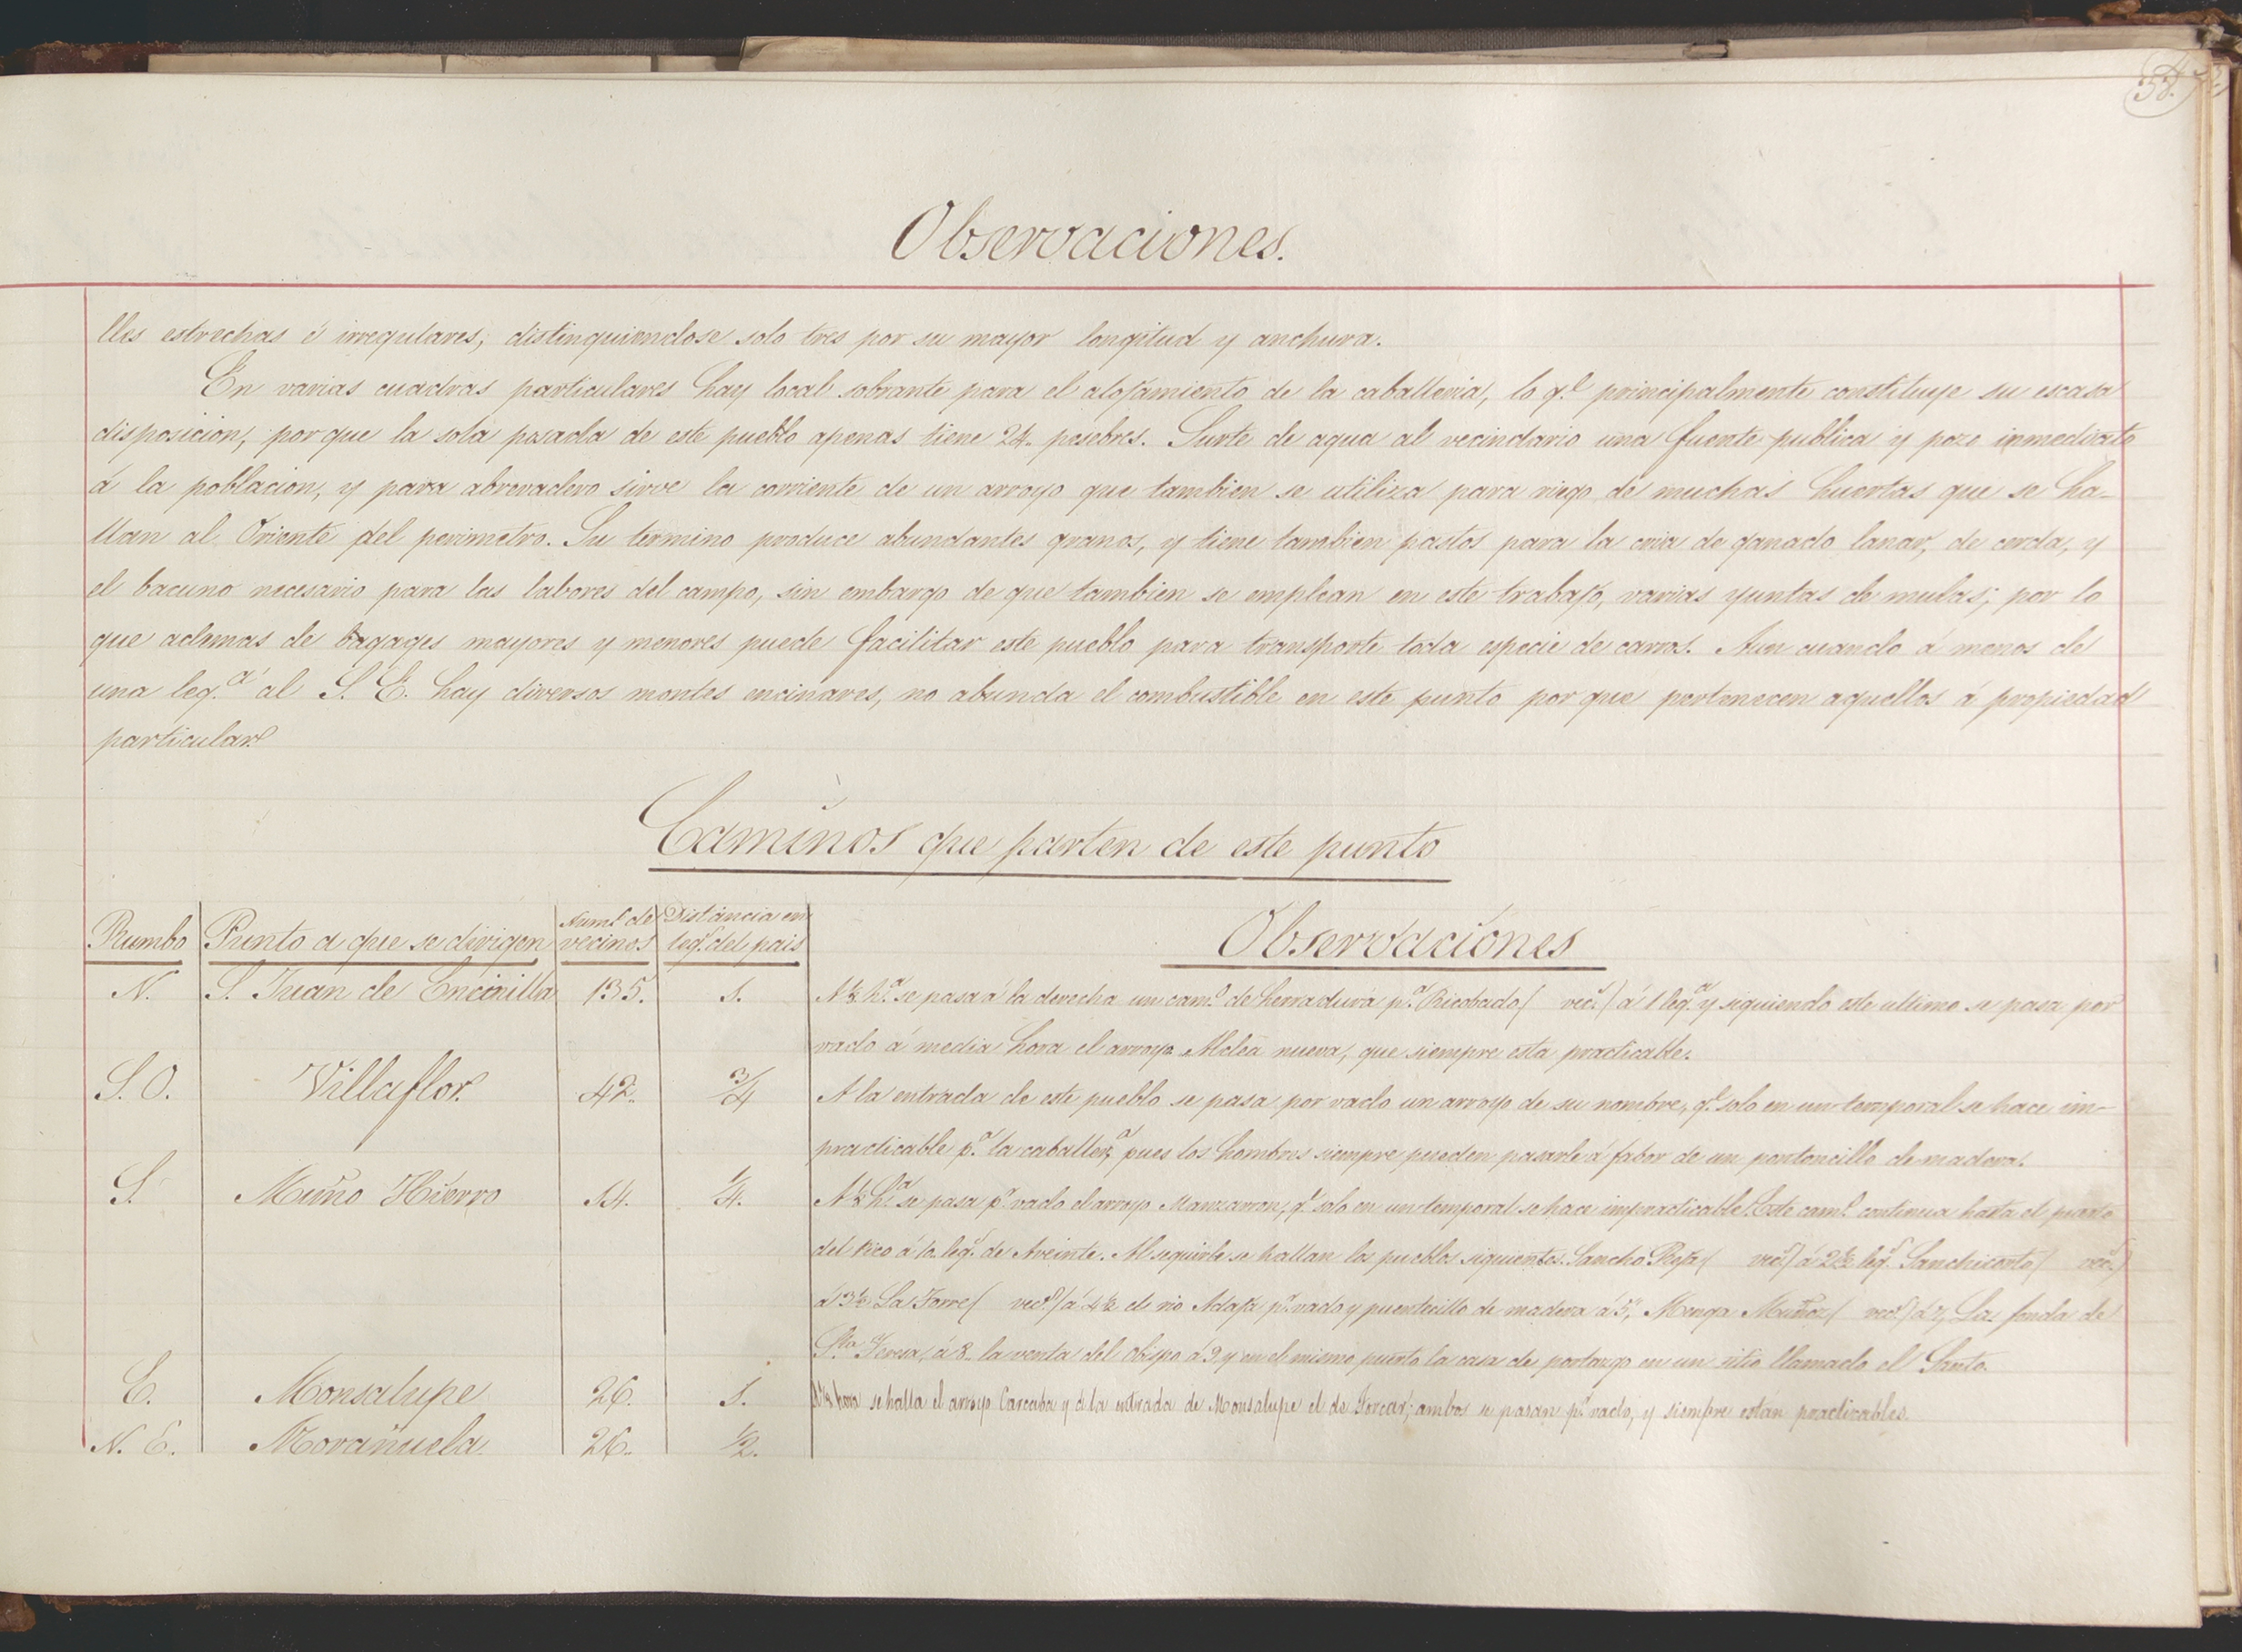 58.
Observaciones.
lles estrechas é irregulares; distinguiendose solo tres por su mayor longitud y anchura.
En varias cuadras particulares hay local sobrante para el alojamiento de la caballeria, lo q.e principalmente constituye su escasa
disposicion, por que la sola posada de este pueblo apenas tiene 24. pesebres. Surte de agua al vecindario una fuente publica y pozo inmediato
á la poblacion, y para abrevadero sirve la corriente de un arroyo que tambien se utiliza para riego de muchas huertas que se ha-
llan al Oriente del perimetro. Su termino produce abundantes granos, y tiene tambien pastos para la cria de ganado lanar, de cerda, y
el bacuno necesario para las labores del campo, sin embargo de que tambien se emplean en este trabajo, varias yuntas de mulas; por lo
que ademas de bagages mayores y menores puede facilitar este pueblo para transporte toda especie de carros. Aun cuando á menos de
una leg.a al S. E. hay diversos montes encinares, no abunda el combustible en este punto por que pertenecen aquellos á propiedad
particular.
Caminos que parten de este punto
Rumbo Punto á que se dirigen Num.o de vecinos Distancia en leg.s del pais Observaciones
N. S. Juan de Encinilla 135. 1. A ½ h.a se pasa á la derecha un cam.o de herradura p.a Ricobado ( vec.s) á 1 leg.a y siguiendo este ultimo se pasa por
vado á media hora el arroyo Aldea nueva, que siempre esta practicable.
S. O. Villaflor. 42. ¾ A la entrada de este pueblo se pasa por vado un arroyo de su nombre, q.e solo en un temporal se hace im-
practicable p.a la caballer.a pues los hombres siempre pueden pasarle á fabor de un pontoncillo de madera.
S. Muño Hierro 14. ¼. A ½ h.a se pasa p.r vado el arroyo q.e solo en un temporal se hace impracticable. Este cam.o continua hasta el puerto
del Pico á 10 leg.s de Aveinte. Al seguirle se hallan los pueblos siguientes. Sancho Reja ( vec.s) á 2½ leg.s Sanchicorto ( vec.s)
á 3½ La Torre ( vec.s) á 4½ el rio Adaja p.r vado y puentecillo de madera á 5, Menga Muñoz ( vec.s) á 7, La fonda de
S.ta Teresa, á 8. la venta del Obispo á 9 y en el mismo puerto la casa de portazgo en un sitio llamado el Santo.
E. Monsalupe 26. 1. A ½ hora se halla el arroyo Carcaba y á la entrada de Monsalupe el de ambos se pasan p.r vado, y siempre estan practicables.
N. E. Morañuela. 26. ½.